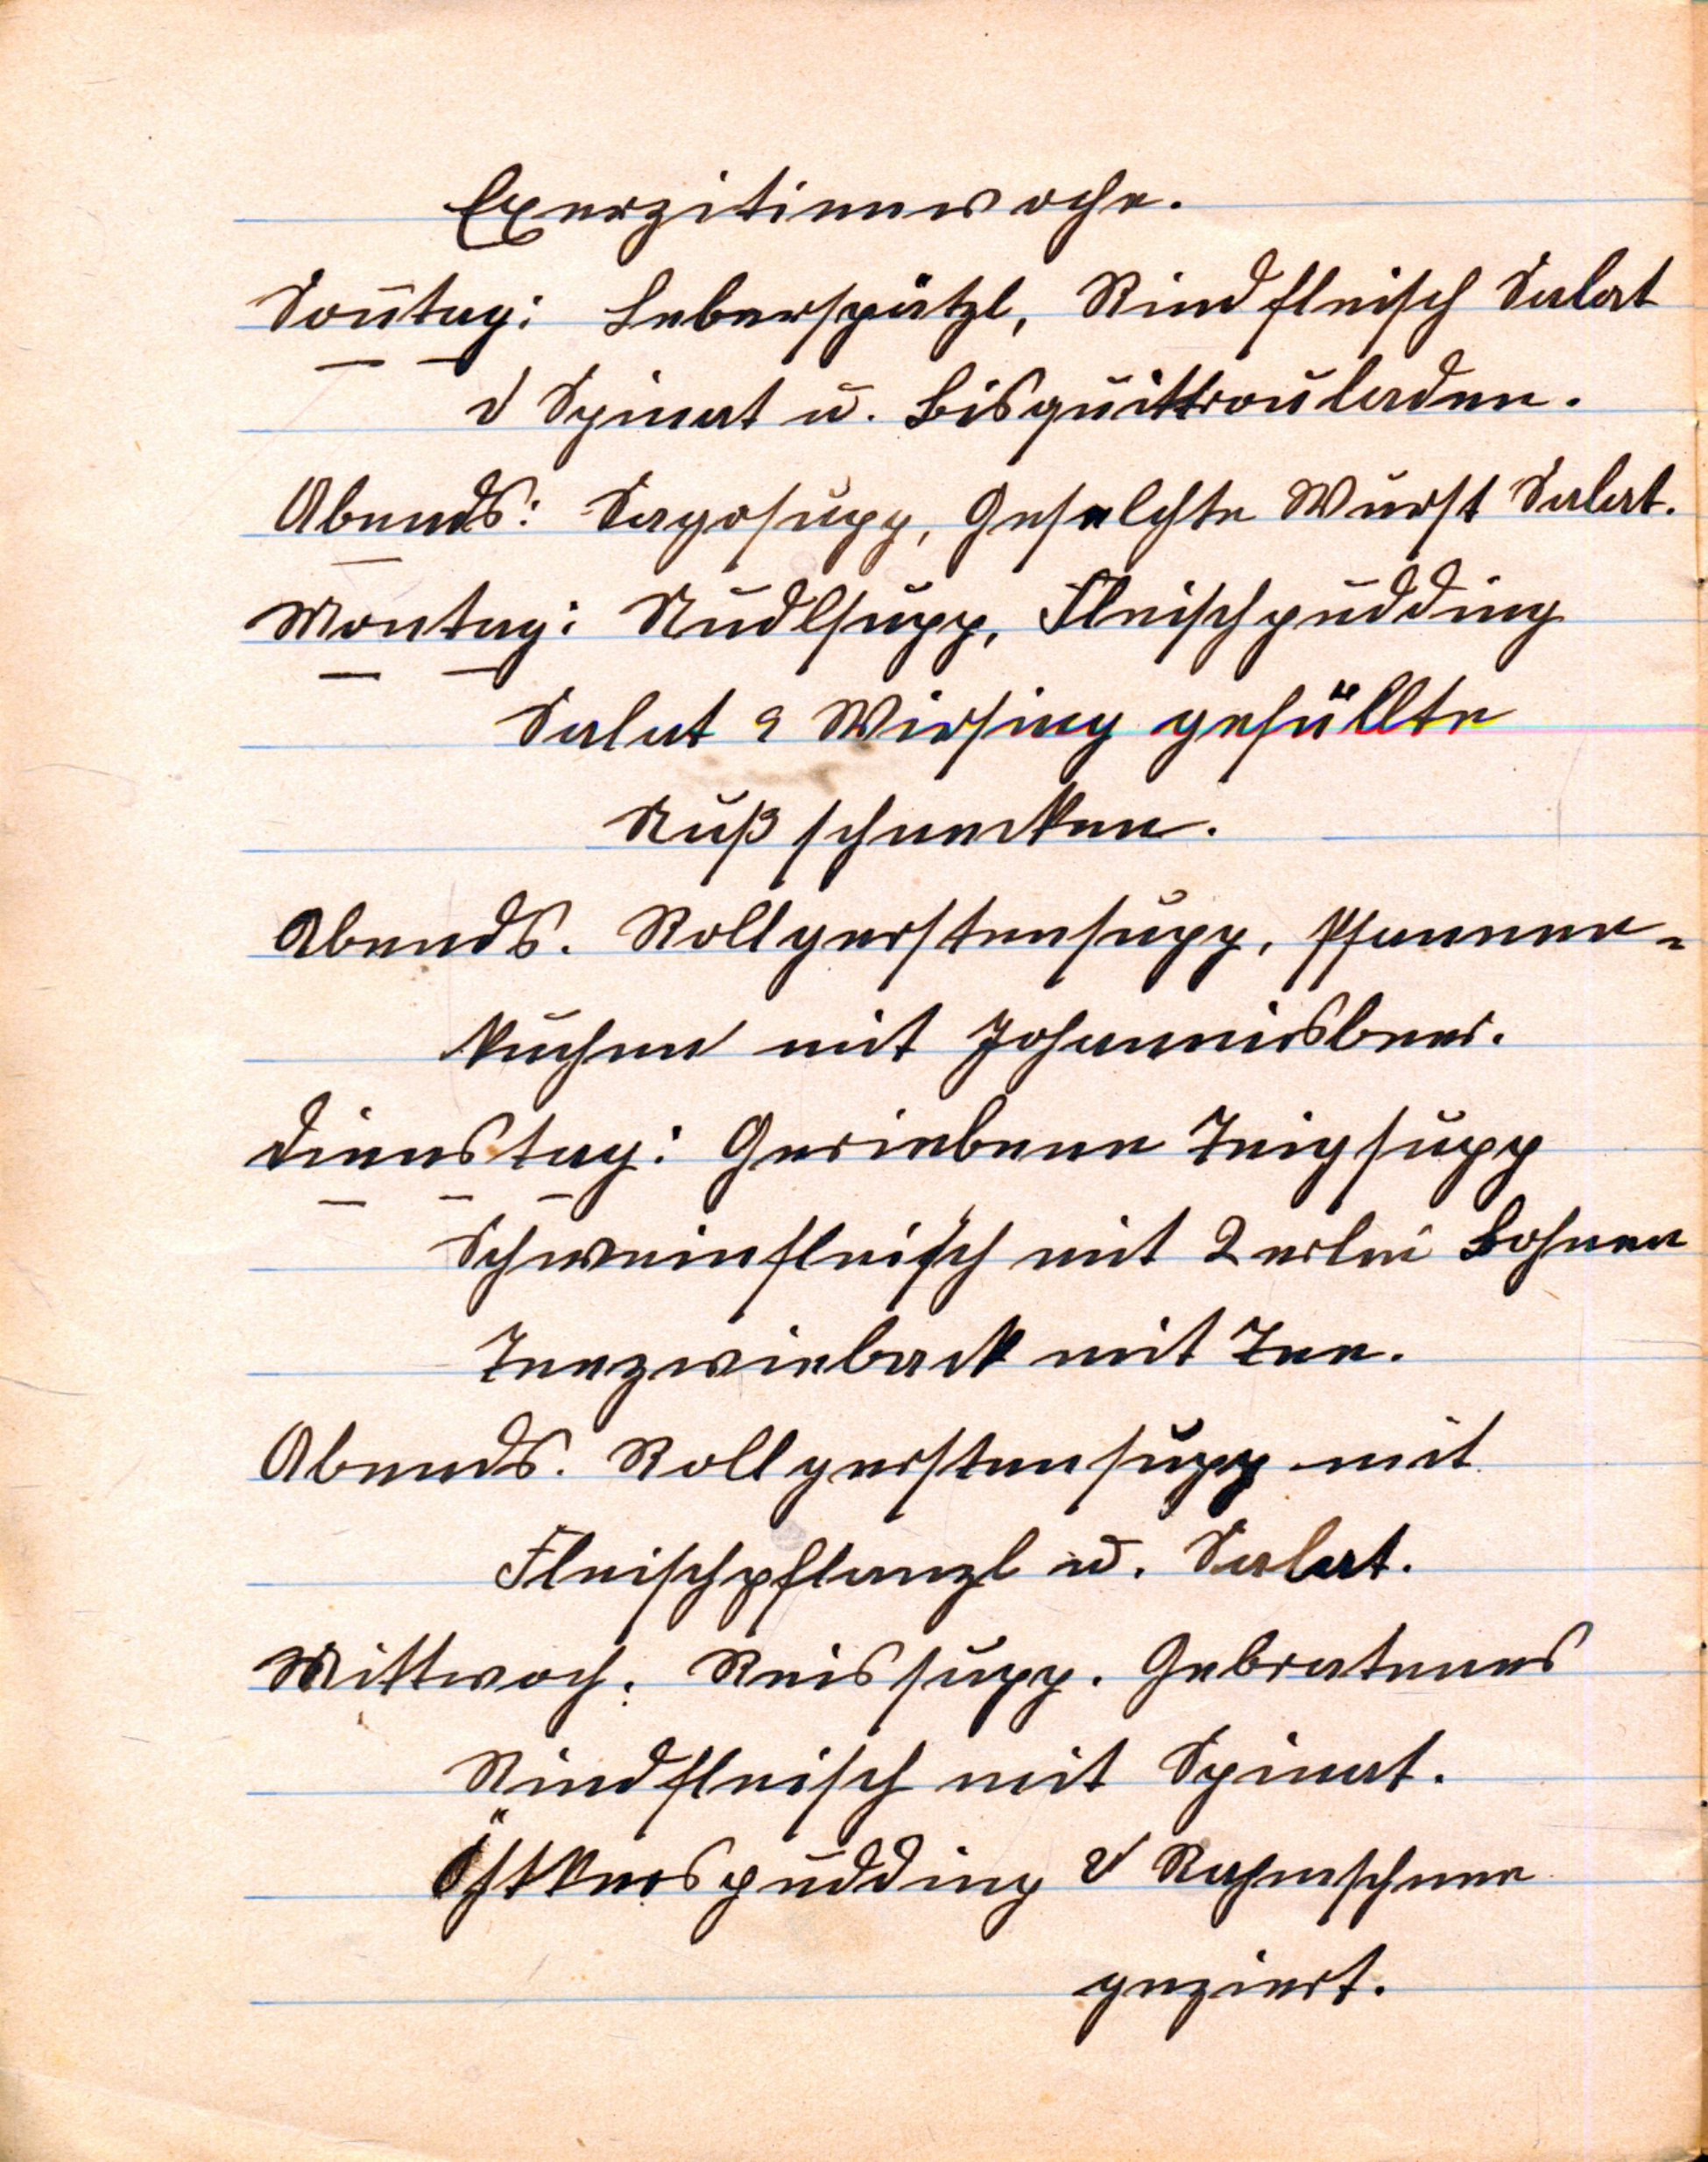 Exerzitienwoche.
Soñtag: Leberspätzl, Rindfleisch Salat
& Spinat u. Bisquittrouladen.
Abends: Sagosupp, Geselchte Wurst Salat.
Montag: Nudlsupp, Fleischpudding
Salat & Wirsing gefüllte
Nußschnecken.
Abends. Rollgerstensupp, Pfannen-
kuchen mit Johannisbeer.
Dienstag: Geriebene Teigsupp
Schweinfleisch mit 2erlei Bohnen
Teezwieback mit Tee.
Abends. Rollgerstensupp mit
Fleischpflanzl u. Salat.
Mittwoch. Reissupp. Gebratenes
Rindfleisch mit Spinat.
pudding & Rahmschnee
geziert.